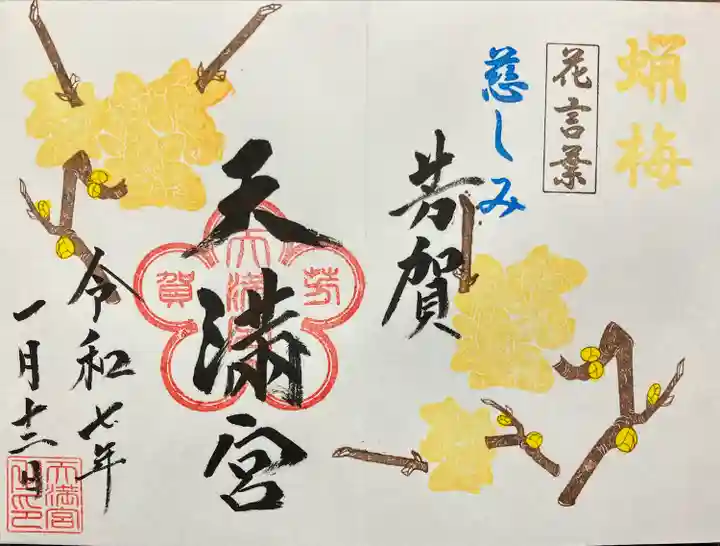 蝋梅
花言葉
慈しみ
芳賀
天満宮
芳
賀
令和七年
一月十二日
天満宮